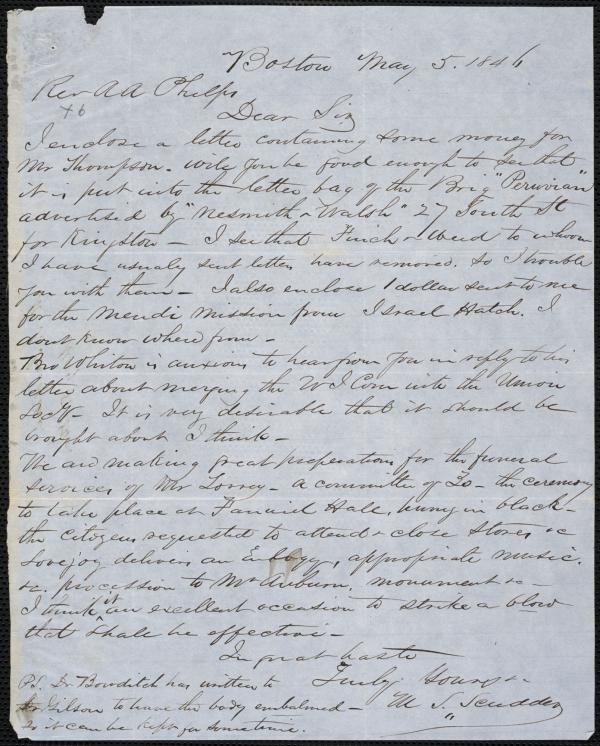 Boston May 5. 1846
Rev A A Phelps
Dear Sir
I enclose a letter containing some money for
Mr Thompson. will you be good enough to see that
it is put into the letter bag of the Brig "Peruvian"
advertised by "Nesmith & Walsh" 27 South St
for Kingston - I see that Finch & Weed to whom
I have usualy sent letters have removed. so I trouble
you with them - I also enclose 1 dollar sent to me
for the Mendi Mission from Israel Hatch. I
dont know where from -
Bro Whiton is anxious to hear from you in reply to his
letter about merging the W I Com with the Union
Socy - It is very desirable that it should be
brought about I think -
We are making great preparations for the funeral
services of Mr Torrey - a committee of 20 - the ceremony
to take place at Faneuil Hall, hung in black -
the citizens requested to attend & close stores &c
Lovejoy delivers an Eulogy, appropriate music.
&c. procession to Mt Auburn. monument &c -
I think it an excellent occasion to strike a blow
that shall be effective -
In great haste
Truly Yours &c
M. S. Scudder
P.S. Dr Bowditch has written to
Dr Gibson to have the body embalmed -
so it can be kept for sometime.